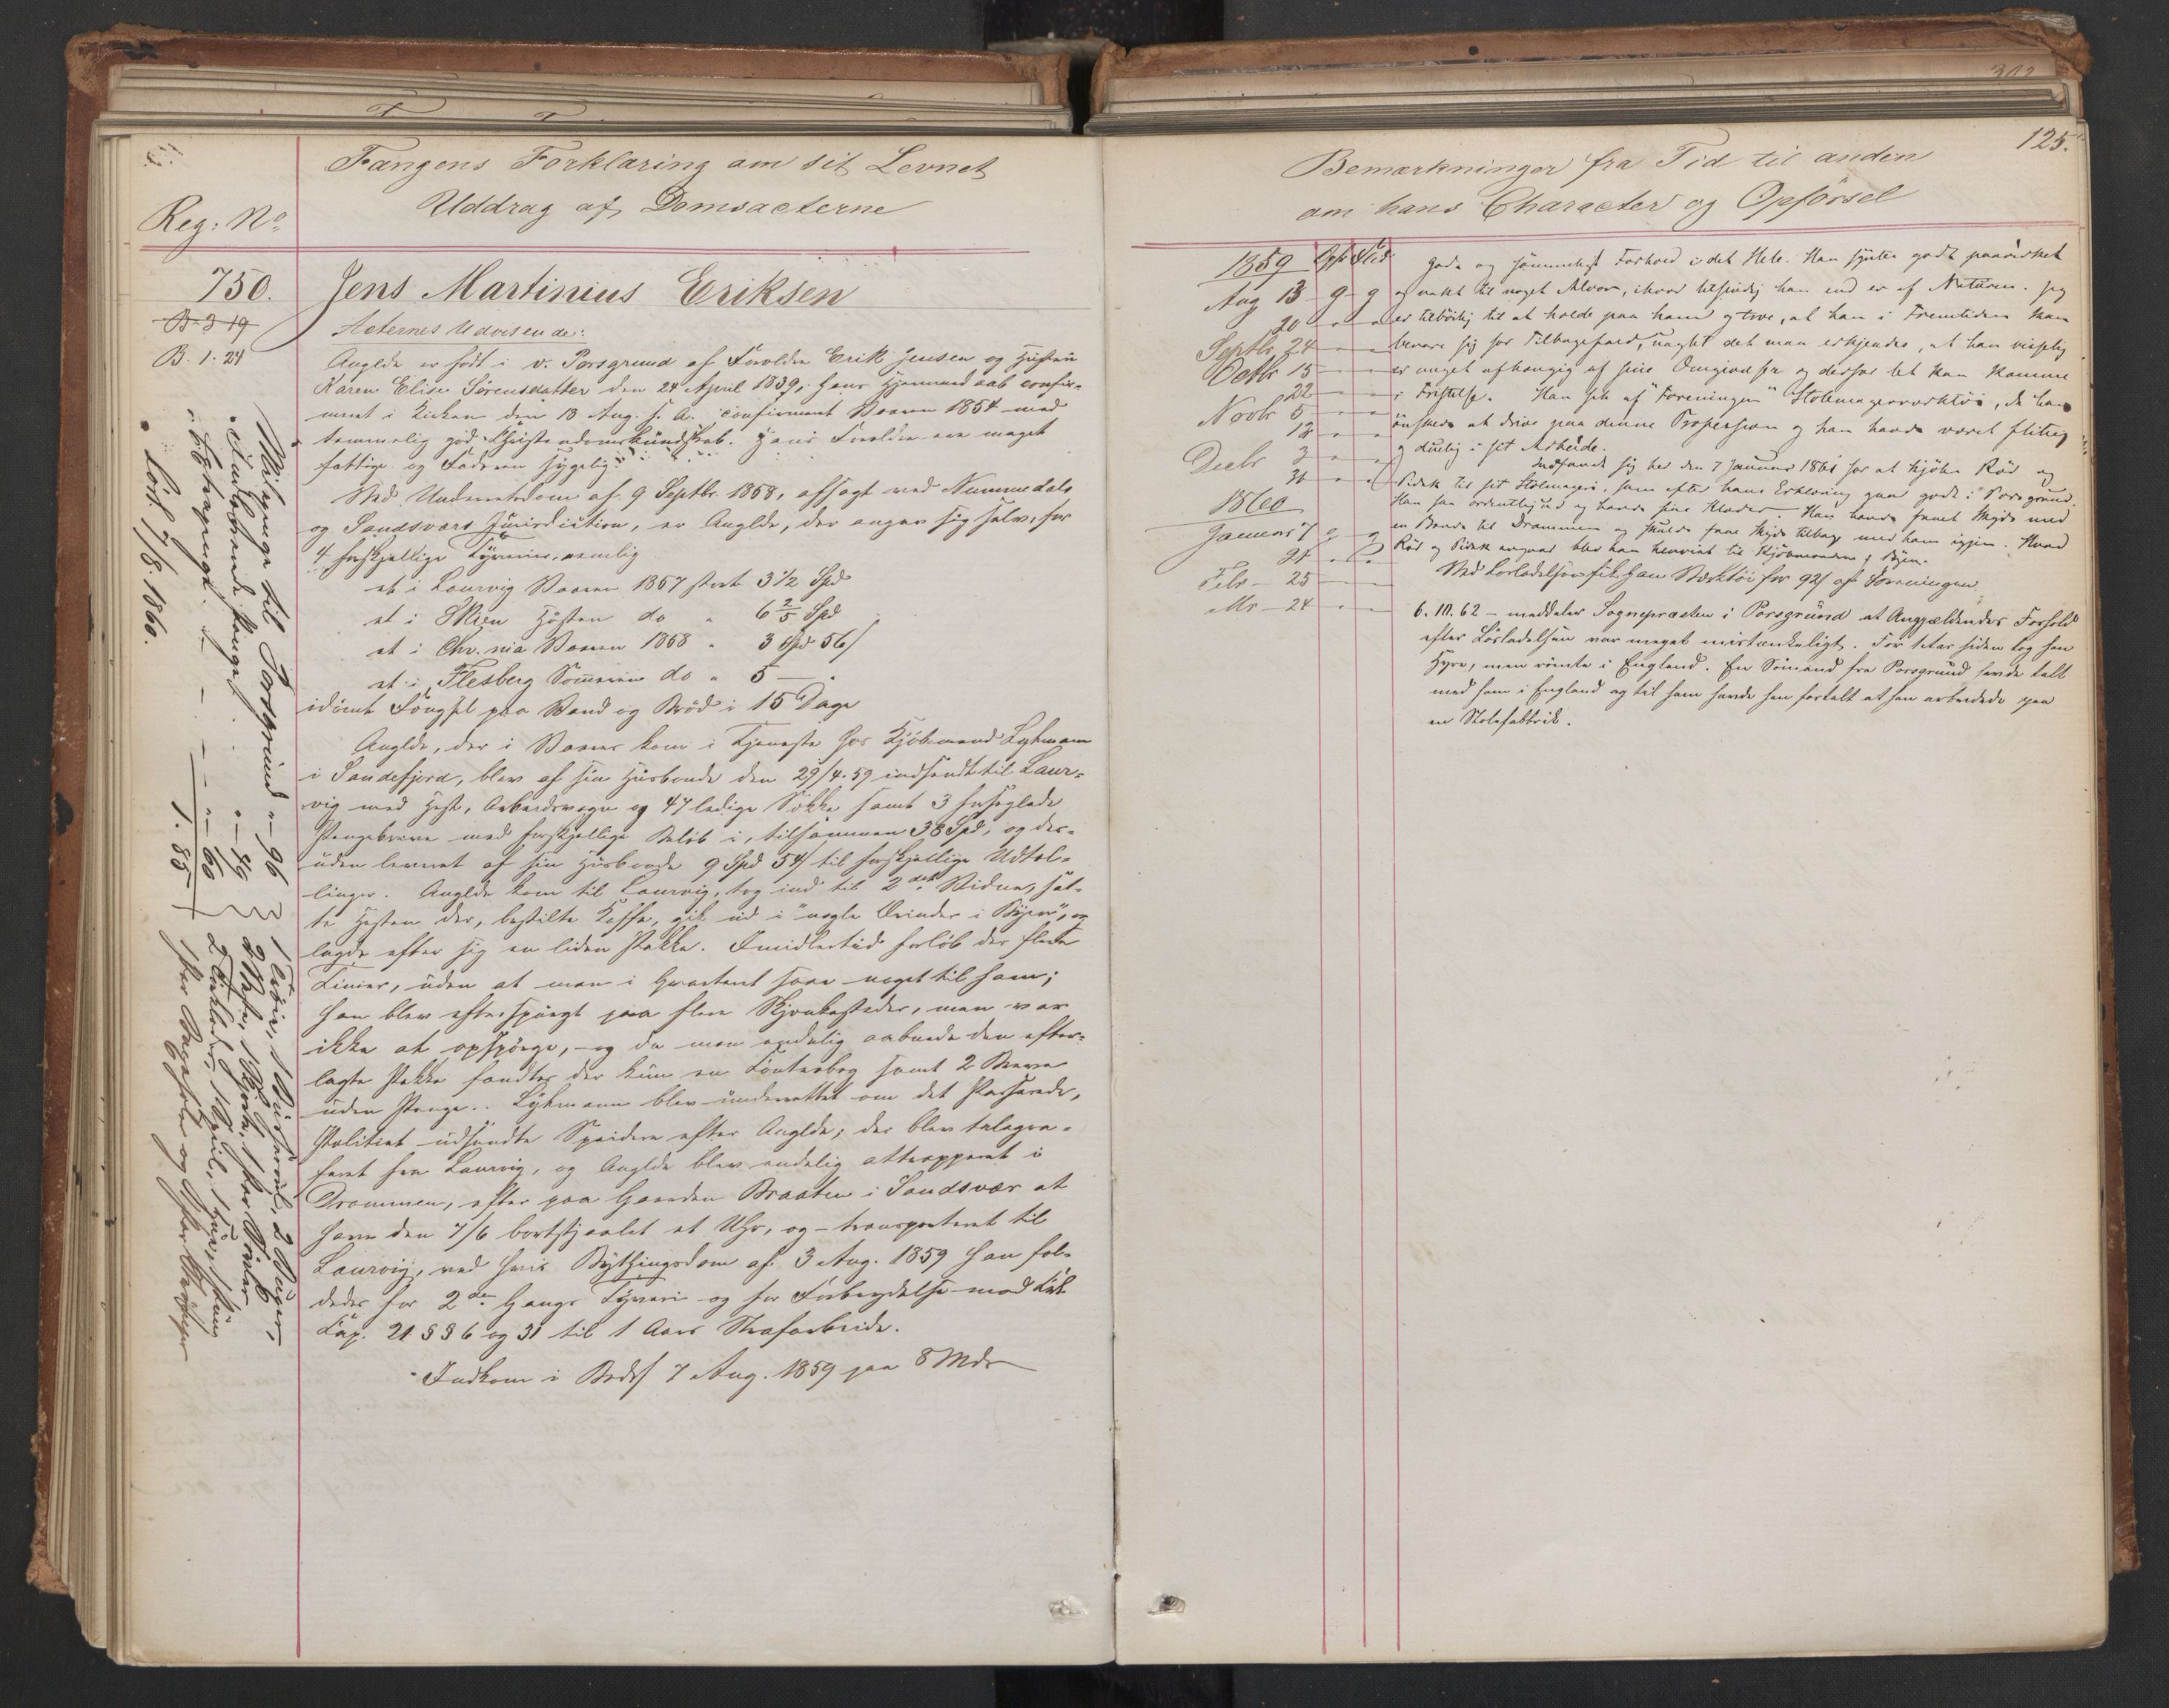 Fangens Forklaring om sit Levnet
Uddrag af Domsacterne
Reg: No
750.
B. 3 19
B. 1. 24
Jens Martinius Eriksen
Acternes Udvisende:
Anglde er født i v. Porsgrund af Forældre Erik Jensen og Hustru
Karen Elise Sørensdatter den 24 April 1839, hans Hjemmedaab confir-
meret i Kirken den 18 Aug. s. A. confirmeret Vaaren 1854 med
temmelig god Christendomskundskab. Hans Forældre ere meget
fattige og Faderen sygelig.
Ved Underretsdom af 9 Septbr. 1858, afsagt ved Nummedals
og Sandsværs Jurisdiction, er Anglde, der angav sig selv, for
4 forskjellige Tyverier, nemlig
et i Laurvig Vaaren 1857 stort 3 1/2 Spd
et i Skien Høsten do " 6 2/5 Spd
et i Chr.nia Vaaren 1858 " 3 Spd 56/
et i Flesberg Sommeren do " 5 —
idømt Fængsel paa Vand og Brød i 15 Dage
Anglde, der i Vaares kom i Tjeneste hos Kjøbmand Lykmann
i Sandefjord, blev af sin Husbonde den 29/4. 59 indsendt til Laur-
vig med Hest, Arbeidsvogn og 47 ledige Sække samt 3 forseglede
Pengebreve med forskjellige Beløb i, tilsammen 38 Spd, og des-
uden leveret af sin Husbonde 9 Spd 54/ til forskjellige Udtæl-
linger. Anglde kom til Laurvig, tog ind til 2det Vidne, sat-
te Hesten der, bestilte Kaffe, gik ud i "nogle Ærinder i Byen", og
lagde efter sig en liden Pakke. Imidlertid forløb der flere
Timer, uden at man i Qvarteret saae noget til ham;
han blev efterspurgt paa flere Skjænkesteder, men var
ikke at opspørge, - og da man endelig aabnede den efter-
lagte Pakke fandtes der kun en Contrabog samt 2 Breve
uden Penge. Lykmann blev underrettet om det Passerede,
Politiet udsendte Speidere efter Anglde; der blev telegra-
feret fra Laurvig, og Anglde blev endelig attrapperet i
Drammen, efter paa Gaarden Braaten i Sandsvær at
have den 7/6 bortstjaalet et Uhr, og - transporteret til
Laurvig, ved hvis Bythingsdom af 3 Aug. 1859 han fæl-
dedes for 2den Gangs Tyveri og for Forbrydelse mod Lovs
Cap. 21 §§ 6 og 31 til 1 Aars Strafarbeide.
Indkom i Bodsf 7 Aug. 1859 paa 8 Mdr
Reisepenge til Porsgrund " - 96
Indehavende Penge
1. 85
Løsl. 1/8. 1860.
125.
Bemærkninger fra Tid til anden
om hans Character og Opførsel
1859 Opf Flid
Aug 13 g g
20 " "
Septbr 24 " "
Octbr 15 " "
22 " "
Novbr 5 " "
12 " "
Decbr 3 " "
31 " "
1860
Januar 7 g g
21 " "
Febr - 25 — —
Mr - 24 " —
Godt og sømmeligt Forhold i det Hele. Han synes godt paavirket
og vakt til noget Alvor, ihvor letsindig han end er af Naturen. Jeg
er tilbøilig til at holde paa ham og troe, at han i Fremtiden kan
bevare sig for Tilbagefald, uagtet det maa erkjendes, at han visselig
er meget afhængig af sine Omgivelser og derfor let kan komme
i Fristelse. Han fik af "Foreningen" Stolemagerværktøi, da han
ønskede at drive paa denne Profession og han havde været flittig
og duelig i sit Arbeide.
Indfandt sig her den 7 Januar 1861 for at kjøbe Rør og
Pidsk til sit Stolmageri, som efter hans Erklæring gaar godt i Porsgrund.
Han saa ordentlig ud og havde pene Klæder. Han havde faaet Skyds med
en Bonde til Drammen og skulde faae Skyds tilbage med ham igjen. Hvad
Rør og Pidsk angaar blev han henvist til Kjøbmænden i Byen.
Ved Løsladelsen fik han Værktøi for 92/ af Foreningen
6. 10. 62 - meddeler Sognepræsten i Porsgrund at Angjældendes Forhold
efter Løsladelsen var meget mistænkeligt. For 1 Aar siden tog han
Hyre, men rømte i England. En Sømand fra Porsgrund havde talt
med ham i England og til ham havde han fortalt at han arbeidede paa
en Stolefabrik.